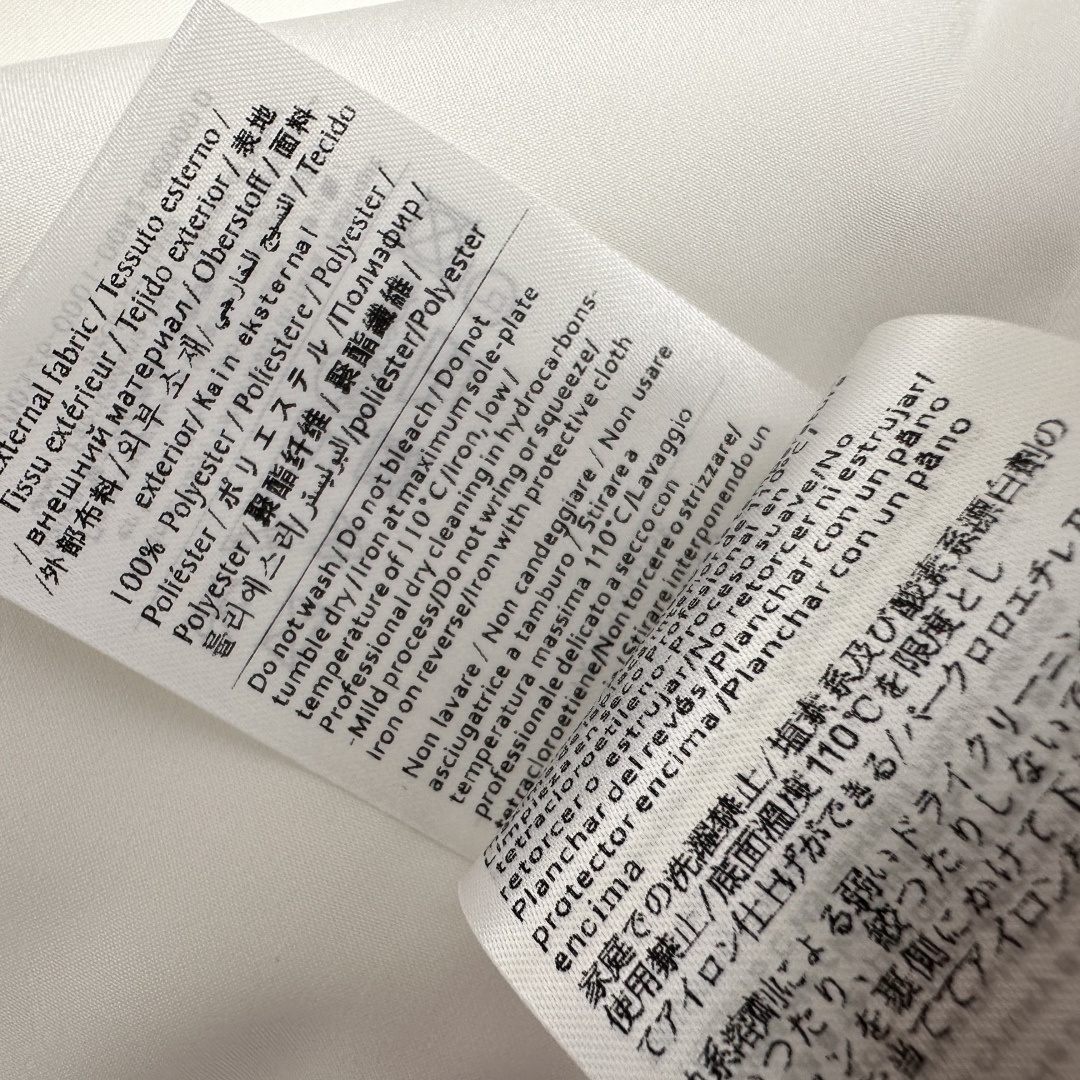 External fabric / Tessuto esterno /
Tissu extérieur / Tejido exterior / 表地
/ внешний материал / Oberstoff / 面料
/外部布料 / 외부 소재/ النسيج الخارجي / Tecido
exterior/ Kain eksternal
100% Polyester / Poliestere / Polyester /
Poliéster / ポリエステル /Полиэфир /
Polyester / 聚酯纤维 / 聚酯纖維 /
폴리에스테르/ البوليستر /poliéster/Polyester
Do not wash / Do not bleach / Do not
tumble dry / Iron at maximum sole-plate
temperature of 110°C/Iron, low /
Professional dry cleaning in hydrocarbons-
-Mild process/Do not wring or squeeze/
Iron on reverse/Iron with protective cloth
Non lavare / Non candeggiare / Non usare
asciugatrice a tamburo / Stirare a
temperatura massima 110°C/Lavaggio
professionale delicato a secco con
tetracloroetilene/Non torcere o strizzare/
Stirare interponendo un
retorcer o estrujar/No retorcer ni estrujar/
Planchar del revés/Planchar con un paño
protector encima /Planchar con un paño
encima
家庭での洗濯禁止/ 塩素系及び酸素系漂白剤の
使用禁止/底面温度110℃を限度とし
てアイロン仕上げができる/パークロロエチレ
系溶剤による弱いドライクリーニン